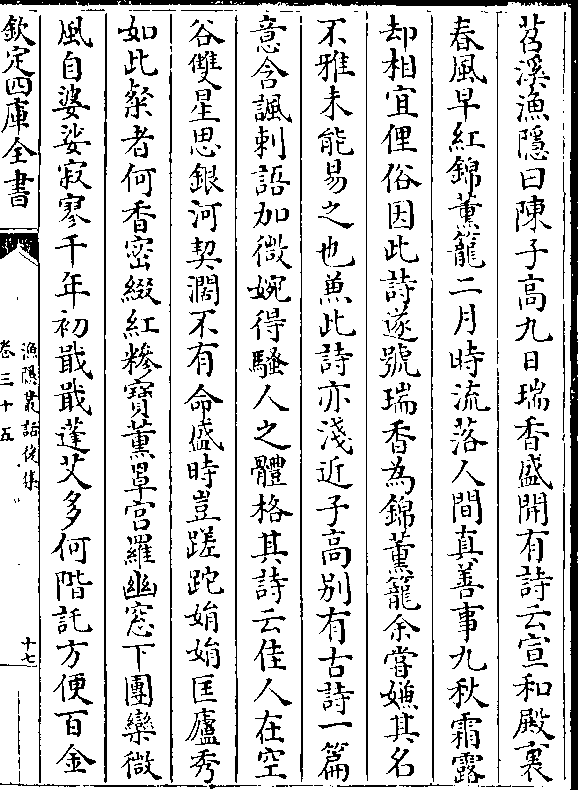 苕溪漁隱曰陳子高九日瑞香盛開有詩云宣和殿裏
春風早紅錦薰籠二月時流落人間真善事九秋霜露
却相宜俚俗因此詩遂號瑞香為錦薰籠余嘗嫌其名
不雅未能易之也兼此詩亦淺近子高别有古詩一篇
意含諷刺語加微婉得騷人之體格其詩云佳人在空
谷雙星思銀河契濶不有命盛時豈蹉跎娟娟匡廬秀
如此粲者何香密綴紅糝寶薰罩宫羅幽窓下團欒微
風自婆娑寂寥千年初戢戢蓬艾多何階託方便百金
欽定四庫全書
漁隱叢話後集
卷三十五
十七